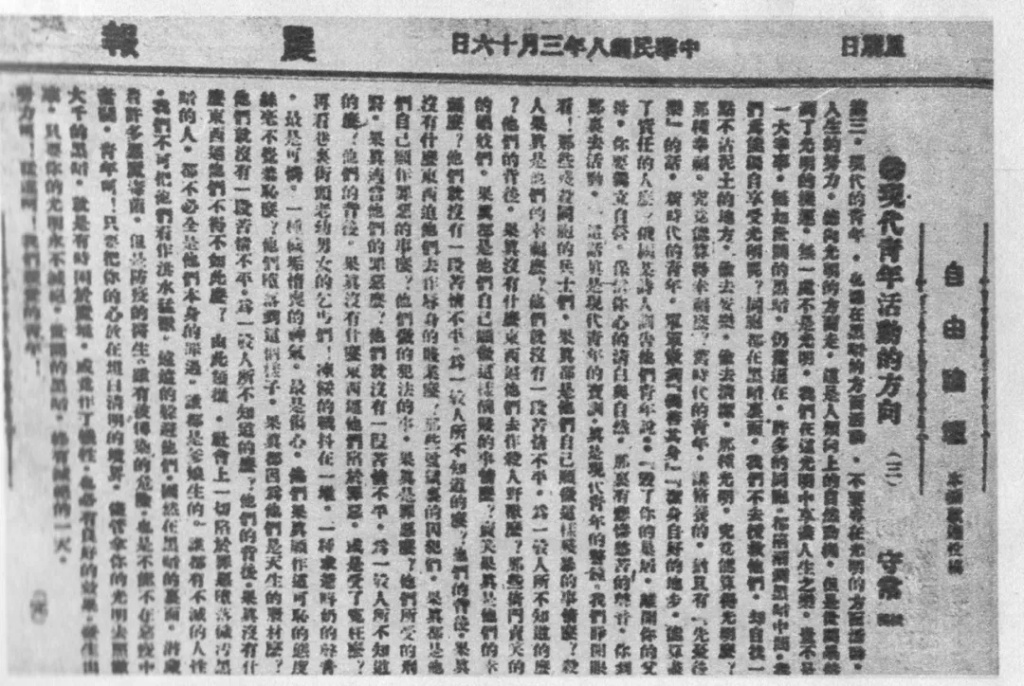 日期星
日六十月三年八國民華中
報晨
自由論壇
本欄歡迎投稿
●現代青年活動的方向(三) 守常
第三,現代的青年,應該在黑暗的方面活動,不要專在光明的方面活動。
人生的努力,總向光明的方面走,這是人類向上的自然動機,但是世間果然
到了光明的機運,無一處不是光明,我們在這光明中享盡人生之樂,豈不是
一大幸事。無如世間的黑暗,仍舊還在,許多的同胞,都陷溺到黑暗中間,我
們焉能獨自享受光明呢?同胞都在黑暗裏面,我們不去援救他們,却自找一
點不沾泥土的地方,偷去安樂,偷去清潔,那種光明,究竟能算得光明麼?
那種幸福,究竟能算得幸福麼?舊時代的青年,講修養的,猶且有「先憂後
樂」的話,新時代的青年,單單做到「獨善其身」「潔身自好」的地步,能算盡
了責任的人麼?俄國某詩人訓告他們青年說。「毀了你的巢居,離開你的父
母,你要獨立自營,保你心的清白與自然,那裏有悲慘愁苦的聲音,你到
那裏去活動。」這話真是現代青年的寶訓,真是現代青年的警鐘。我們睜開眼
看!那些殘殺同胞的兵士們,果真都是他們自己願做這樣殘暴的事情麼?殺
人果真是他們的幸福麼?他們就沒有一段苦情不平,爲一般人所不知道的麼
?他們的背後,果真沒有什麼東西逼他們去作殺人野獸麼?那些倚門賣笑的
的娼妓們,果真都是他們自己願做這樣醜賤的事情麼?賣笑果真是他們的幸
福麼?他們就沒有一段苦情不平,爲一般人所不知道的麼?他們的背後,果真
沒有什麼東西迫他們去作辱身的賤業麼?那些監獄裏的囚犯們,果真都是他
們自己願作罪惡的事麼?他們做的犯法的事,果真是罪惡麼?他們所受的刑
罰,果真適當他們的罪惡麼?他們就沒有一段苦情不平,爲一般人所不知道
的麼?他們的背後,果真沒有什麼東西逼他們陷於罪惡,或是受了冤枉麼?
再看巷裏街頭老幼男女的乞丐們!凍餒的戰抖在一堆,一種求爺叫奶的聲音
,最是可憐,一種穢垢惰喪的神氣,最是傷心,他們果真願作這可恥的態度
絲毫不覺羞恥麼?他們墮落到這個樣子,果真都因爲他們是天生的廢材麼?
他們就沒有一段苦情不平,爲一般人所不知道的麼?他們的背後,果真沒有什
麼東西逼他們不得不如此麼?由此類推,社會上一切陷於罪惡墮落穢汚黑
暗的人,都不必全是他們本身的罪過。誰都是爹孃生的,誰都有不滅的人性
,我們不可把他們看作洪水猛獸,遠遠的躲避他們。固然在黑暗的裏面,潛藏
着許多惡魔毒菌,但是防疫的醫生,雖有被傳染的危險,也是不能不在惡疫中
奮鬪。青年呵!只要把你的心放在坦白清明的境界,儘管拿你的光明去照澈
大千的黑暗,就是有時困於魔境,或竟作了犧牲,也必有良好的效果,發生出
來。只要你的光明永不滅絕,世間的黑暗,終有滅絕的一天。
努力呵!猛進呵!我們親愛的青年!
(完)